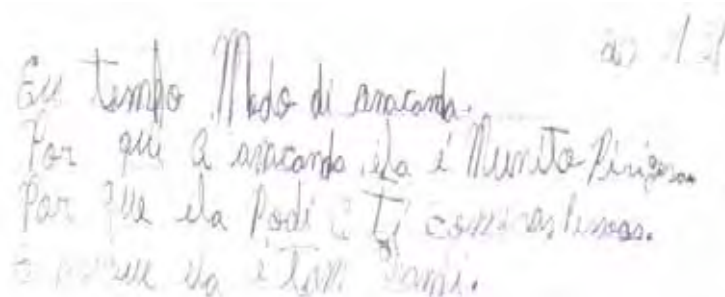 Eu tempo Medo di anaconda.
Por qui a anaconda ela é Munito Pirigosa
Por que ela Podi ti comer as Pesoas.
ela é tom